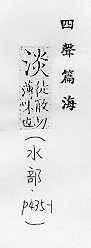 四聲篇海
淡 徒敢切
薄味也
(水部·P435-1